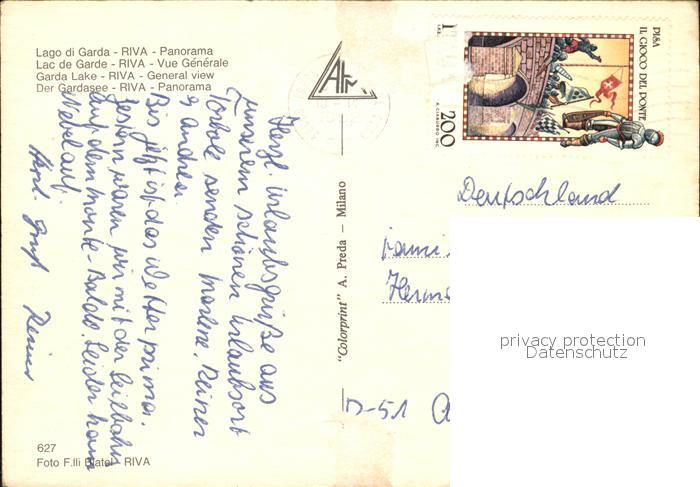 Lago di Garda - RIVA - Panorama
Lac de Garde - RIVA - Vue Générale
Garda Lake - RIVA - General view
Der Gardasee - RIVA - Panorama
Herzl. Urlaubsgrüße aus
unserem schönen Urlaubsort
Torbole senden Marlene, Reiner
u. Andrea.
Bis jetzt ist das Wetter prima.
Gestern waren wir mit der Seilbahn
auf dem Monte-Baldo. Leider kam
Nebel auf.
Herzl. Gruß Reiner
627
Foto F.lli Biatel - RIVA
"Colorprint" A. Preda — Milano
PISA
IL GIOCO DEL PONTE
200
Deutschland
D-51
privacy protection
Datenschutz